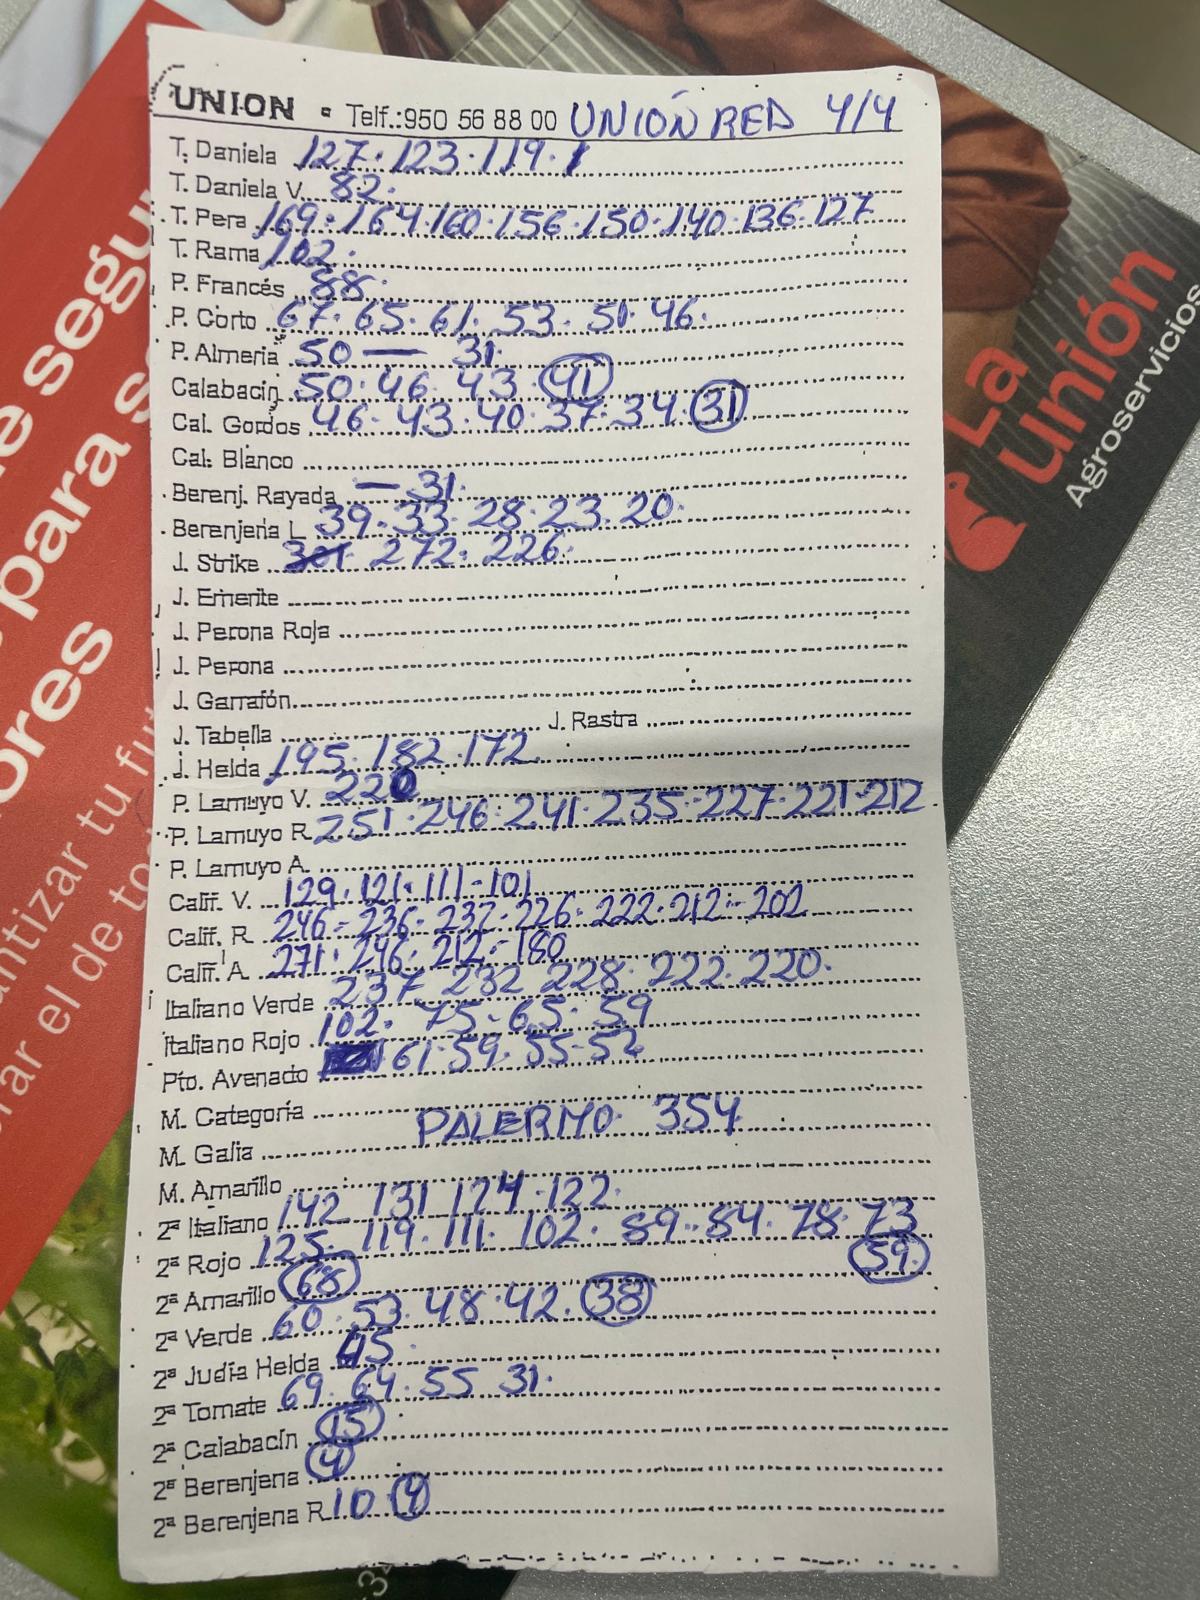 UNION • Telf.:950 56 88 00 UNIÓN RED 4/4
T. Daniela 127. 123. 119.
T. Daniela V. 82.
T. Pera 169. 164. 160. 156. 150. 140. 136. 127
T. Rama 102.
P. Francés 88.
P. Corto 67. 65. 61. 53. 50. 46.
P. Almeria 50 — 31.
Calabacín 50. 46. 43. 41
Cal. Gordos 46. 43. 40. 37. 34. 31
Cal. Blanco
Berenj. Rayada — 31.
Berenjena L 39. 33. 28. 23. 20.
J. Strike 301 272. 226.
J. Emerite
J. Perona Roja
J. Perona
J. Garrafón
J. Tabella J. Rastra
J. Helda 195. 182. 172.
P. Lamuyo V. 220
P. Lamuyo R. 251. 246. 241. 235. 227. 221. 212
P. Lamuyo A.
Calif. V. 129. 121. 111. 101
Calif. R. 246. 236. 232. 226. 222. 212. 202
Calif. A. 271. 246. 212. 180
Italiano Verde 237 232 228. 222. 220.
Italiano Rojo 102. 75. 65. 59
Pto. Avenado 61. 59. 55. 52
M. Categoría
PALERMO. 354
M. Galia
M. Amarillo
2ª Italiano 142 131 124. 122.
2ª Rojo 125. 119. 111. 102. 89. 84. 78. 73
59.
2ª Amarillo 68
2ª Verde 60. 53. 48. 42. 38
2ª Judía Helda 45.
2ª Tomate 69. 64. 55 31.
2ª Calabacín 15
2ª Berenjena 4
2ª Berenjena R. 10 9
La
unión
Agroservicios
para
ores
antizar tu fu
rar el de to